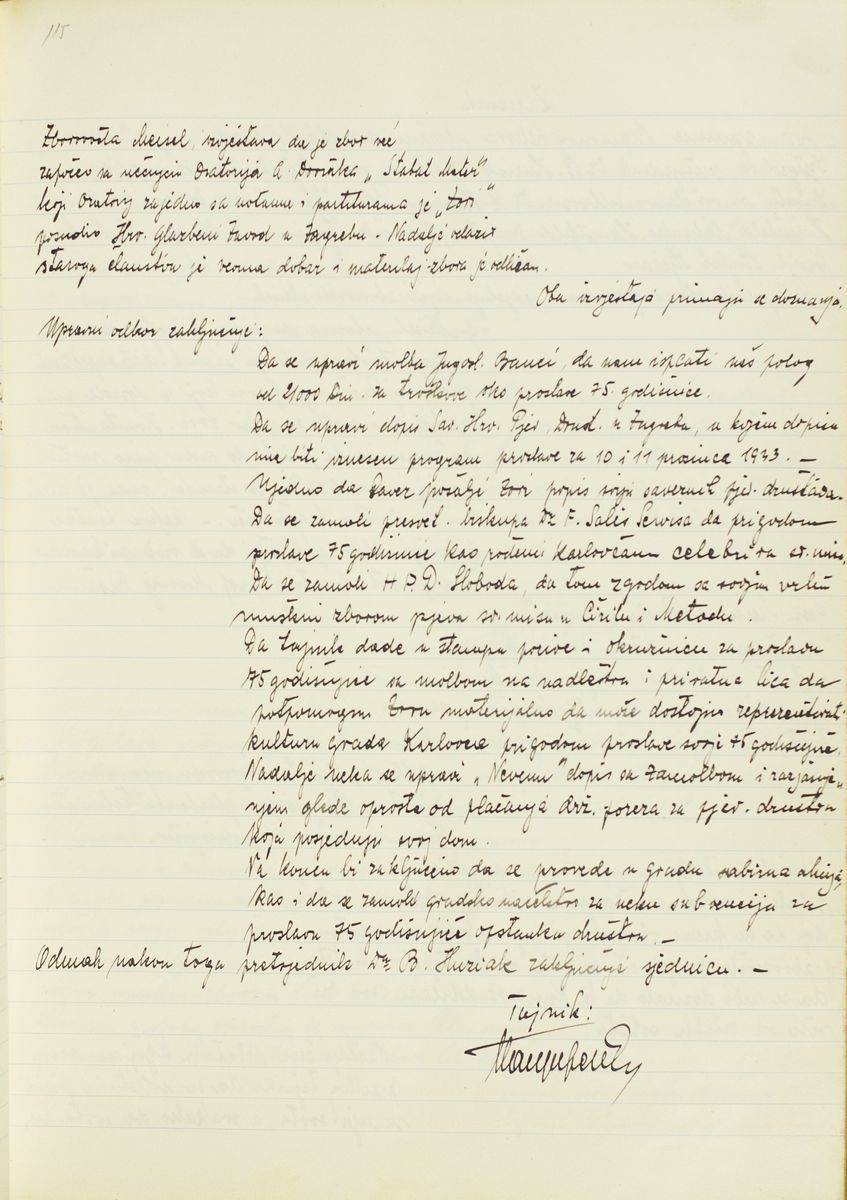 115
Zborovođa Meisel, izvještava da je zbor već
započeo sa učenjem Oratorija A. Dvoržaka „Stabat Mater"
koji Oratorij zajedno sa notama i partiturama je „Zori"
posudio Hrv. Glazbeni Zavod u Zagrebu. Nadalje odaziv
staroga članstva je veoma dobar i materijal zbora je odličan.
Oba izvještaja primaju se do znanja.
Upravni odbor zaključuje:
Da se upravi molba Jugosl. Banci, da nam isplati naš polog
od 2000 Din. za troškove oko proslave 75. godišnjice.
Da se upravi dopis Sav. Hrv. Pjev. Društ. u Zagrebu, u kojem dopisu
ima biti iznesen program proslave za 10 i 11 prosinca 1933. —
Ujedno da Savez pošalje Zori popis sviju saveznih pjev. društava.
Da se zamoli presvet. biskupa Dr F. Salis Sewisa da prigodom
proslave 75 godišnjice kao rođeni Karlovčanin celebrira sv. misu.
Da se zamoli H P. D. Sloboda, da tom zgodom sa svojim vrlim
muškim zborom pjeva sv. misu u Ćirilu i Metodu.
Da tajnik dade u štampu pozive i okružnicu za proslavu
75 godišnjice sa molbom na nadleštva i privatna lica da
potpomognu Zoru materijalno da može dostojno reprezentirati
kulturu grada Karlovca prigodom proslave svoje 75 godišnjice.
Nadalje neka se upravi „Nevenu" dopis sa zamolbom i razjašnje-
njem glede oprosta od plaćanja drž. poreza za pjev. društva
koja posjeduju svoj dom.
Na koncu bi zaključeno da se provede u gradu sabirna akcija,
kao i da se zamoli gradsko načelstvo za neku subvenciju za
proslavu 75 godišnjice opstanka društva. —
Odmah nakon toga pretsjednik Dr. B. Huziak zaključuje sjednicu. —
Tajnik: